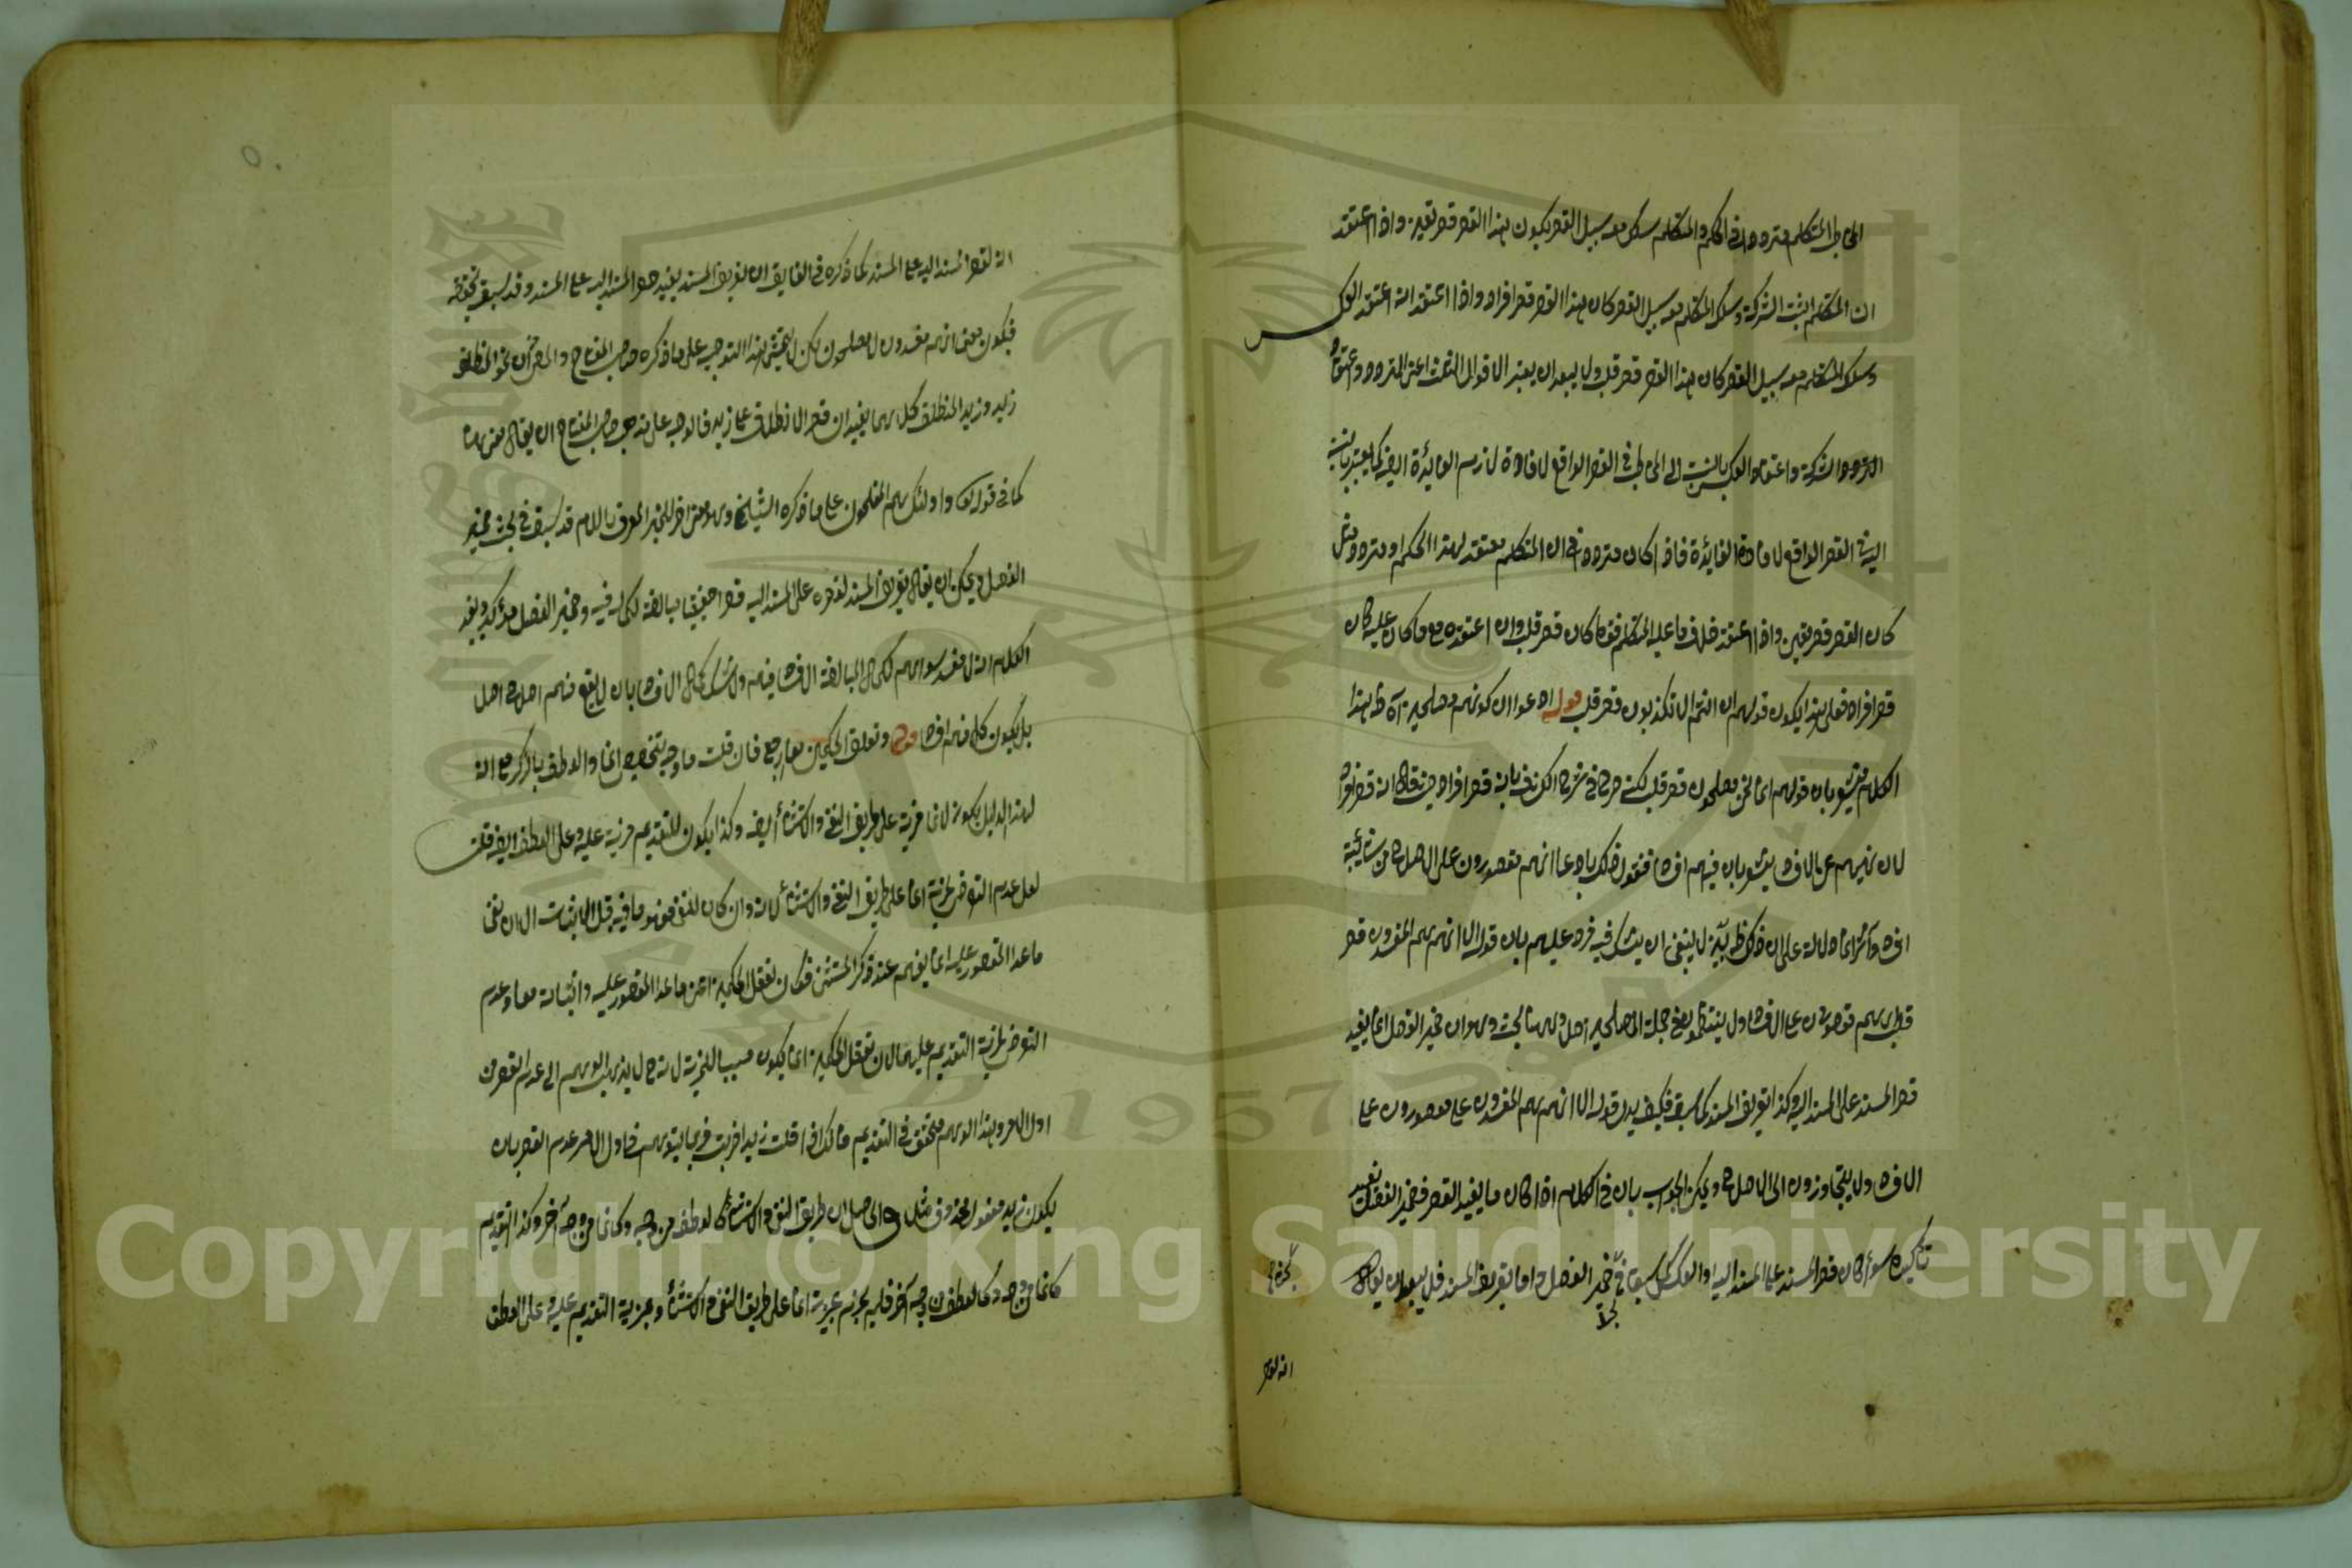 المخاطب المتكلم مترددا في الحكم والمتكلم سلك معه سبيل القصر يكون هذا القصر قصر تعيين واذا اعتقد
ان المتكلم اثبت الشركة وسلك المتكلم معه سبيل القصر كان هذا القصر قصر افراد واذا اعتقد انه اعتقد العكس
وسلك المتكلم معه سبيل القصر كان هذا القصر قصر قلب ولا يبعد ان يعتبر الاقوال الثلث اعنى التردد واعتقاد
التردد الشركة واعتقاد العكس بالنسبة الى المخاطب في القصر الواقع لافادة لازم الفائدة ايضا كما يعتبر بالنسبة
اليه في القصر الواقع لافادة الفائدة فاذا كان مترددا في ان المتكلم معتقد لهذا الحكم او متردد مثل
كان القصر قصر تعيين واذا اعتقد خلاف ما عليه المتكلم فقط كان قصر قلب وان اعتقده مع ما كان عليه كان
قصر افراد فعلى هذا يكون قولهم ان انتم الا تكذبون قصر قلب قوله ادعوا ان كونهم مصلحين آه ظ هذا
الكلام يشعر بان قولهم انما نحن مصلحون قصر قلب لكنه صرح في شرح الكشاف بانه قصر افراد حيث قال انه قصر افراد
لان نهيهم عن الافساد يشعر بان فيهم افسادا فنفوا ذلك بادعاء انهم مقصورون على الاصلاح من شائبة
افساد وآثر انما دلالة على ان ذلك ظ بين لا ينبغي ان يشك فيه فرد عليهم بان قوله الا انهم هم المفسدون قصر
قلب اي هم مقصورون على الافساد ولا ينتظمون في جملة المصلحين اصلا وههنا بحث وهو ان ضمير الفصل انما يفيد
قصر المسند على المسند اليه وكذا تعريف المسند كما سبق فكيف يدل قوله الا انهم هم المفسدون على مقصورون على
الافساد ولا يتجاوزون الى الاصلاح ويمكن الجواب بان في الكلام اذا كان ما يفيد القصر فضمير الفصل يفيد
تأكيده سواء كان قصر المسند على المسند اليه او العكس كما سبق في ضمير الفصل واما تعريف المسند فلا يبعد ان يقال
انه لقصر
انه لقصر المسند اليه على المسند كما ذكره في الفايق ان تعريف المسند يفيد قصر المسند اليه على المسند وقد سبق تحقيقه
فيكون معنى انهم مفسدون لا مصلحون لكن لا يتمشى هذا التوجيه على ما ذكره صاحب المفتاح والمص من ان نحو المنطلق
زيد وزيد المنطلق كل منهما يفيد ان قصر الانطلاق على زيد فالوجه على مذهب صاحب المفتاح ان يقال معنى هذا
كما في قوله تعالى واولئك هم المفلحون على ما ذكره الشيخ وهو معنى اخر للخبر المعرف باللام قد سبق في بحث ضمير
الفصل ويمكن ان يقال تعريف المسند لقصره على المسند اليه قصرا حقيقيا مبالغة لكماله فيه وضمير الفصل مؤكد ويفيد
الكلام انه لا مفسد سواهم لكمال المبالغة الافساد فيهم ولا شك ان كمال الافساد بان لا يقع منهم اصلاح اصلا
بل يكون كل منهم افسادا قوله وتعقل الحكمين معا رجح فان قلت ما وجه تخصيص انما والعطف بالذكر مع انه
لهذا الدليل يكون لانما مزية على طريق النفي والاستثناء ايضا وكذا يكون للتقديم مزية عليه وعلى العطف ايضا قلت
لعل عدم التعرض لمزية انما على طريق النفي والاستثناء لانه وان كان للنفي مفهوما فيه قبل الاثبات الا ان نفى
ماعدا المقصور عليه انما يفهم عند ذكر المستثنى فكان تعقل الحكمين اعنى ماعدا المقصور عليه واثباته معا وعدم
التعرض لمزية التقديم عليهما لان تعقل الحكمين انما يكون سببا للمزية لانه ح لا يذهب الوهم الى عدم القصر من
اول الامر وهذا الوهم متحقق في التقديم فانك اذا قلت زيدا ضربت فربما يتوهم في اول الامر عدم القصر بان
يكون زيد مفعولا لمحذوف مثلا والحاصل ان طريق النفي والاستثناء كالعطف من وجه وكانما من وجه آخر وكذا التقديم
كانما من وجه وكالعطف من وجه آخر فلم يجزم بمزية انما على طريق النفي والاستثناء وبمزية التقديم عليه وعلى العطف